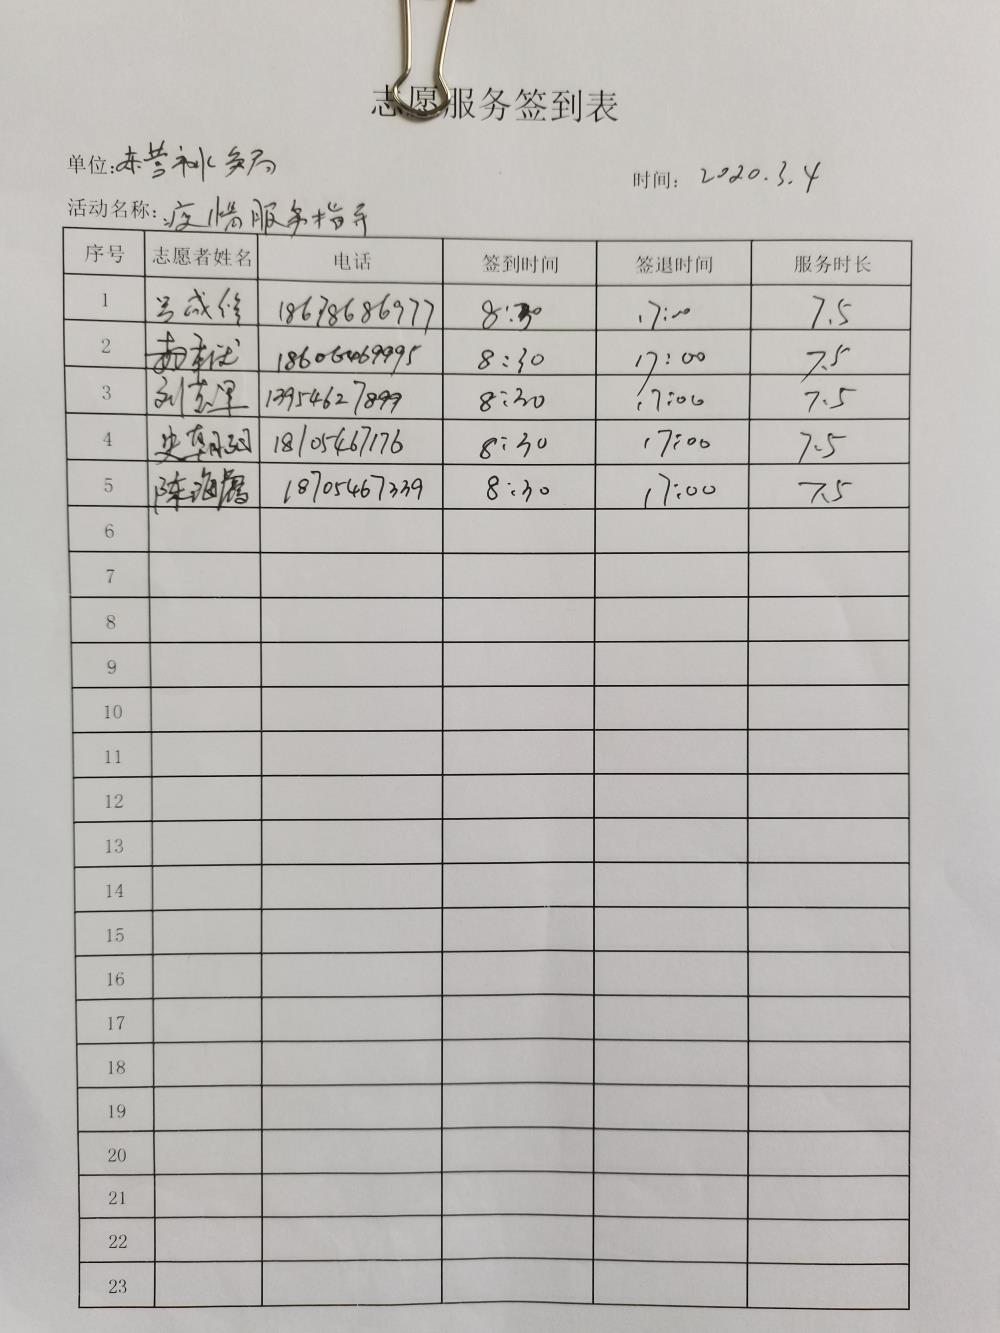 志愿服务签到表
单位:东营市水务局
时间: 2020.3.4
活动名称:疫情服务指导
序号 志愿者姓名 电话 签到时间 签退时间 服务时长
1 吕成修 18678686977 8:30 17:00 7.5
2 18606469995 8:30 17:00 7.5
3 13954627899 8:30 17:00 7.5
4 18105467176 8:30 17:00 7.5
5 陈海鹰 18705467339 8:30 17:00 7.5
6
7
8
9
10
11
12
13
14
15
16
17
18
19
20
21
22
23